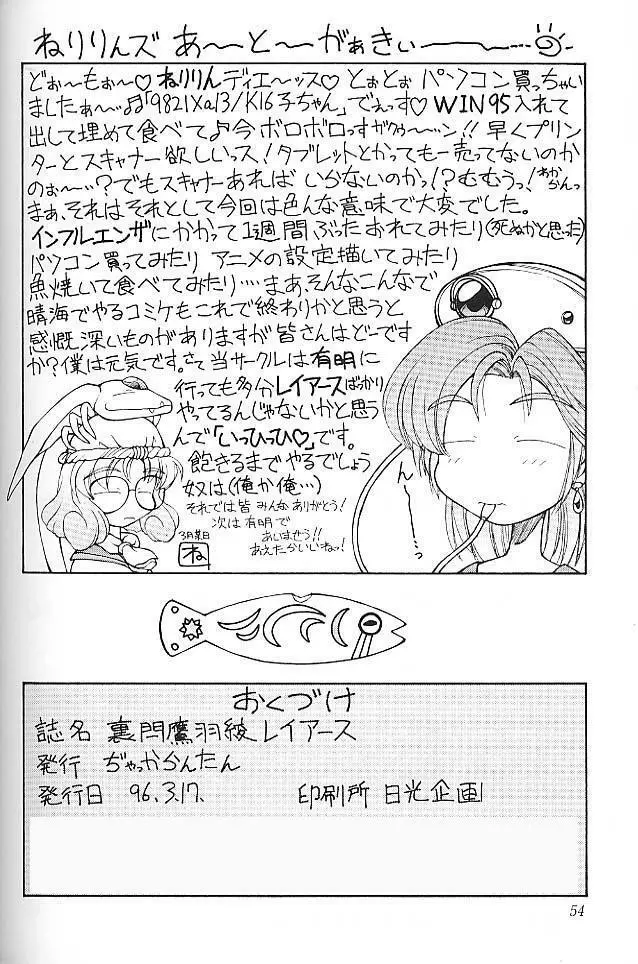 ねりりんズ あ～と～がぁきぃ―――…
どぉ～もぉ～♡ ねりりんディエ～ッス♡ とぉとぉ パソコン買っちゃい
ましたぁ～♫「9821Xa13/K16子ちゃん」でぇっす♡ WIN95入れて
出して埋めて食べて♪今ボロボロっすがぅぅ～ン!! 早くプリン
ターとスキャナー欲しいっス! タブレットとかっても一売ってないのか
のぉ～…?でもスキャナーあれば いらないのかっ!?むむうっ!わからんっ
まぁ、それはそれとして今回は色んな意味で大変でした。
インフルエンザにかかって1週間ぶったおれてみたり(死ぬかと思った)
パソコン買ってみたり アニメの設定描いてみたり
魚焼いて食べてみたり…まあそんなこんなで
晴海でやるコミケもこれで終わりかと思うと
感慨深いものがありますが皆さんはどーです
か?僕は元気です。さて当サークルは有明に
行っても多分レイアースばっかり
やってるんじゃないかと思う
んで「いっひっひ♡」です。
飽きるまでやるでしょう
奴は(俺か俺…)
それでは皆みんなありがとう!
次は有明で
あいませう!!
あえたらいいねっ!
ね
ん
おくづけ
誌名 裏閂鷹羽綾レイアース
発行 ぢゃっからんたん
発行日 96.3.17. 印刷所 日光企画
54